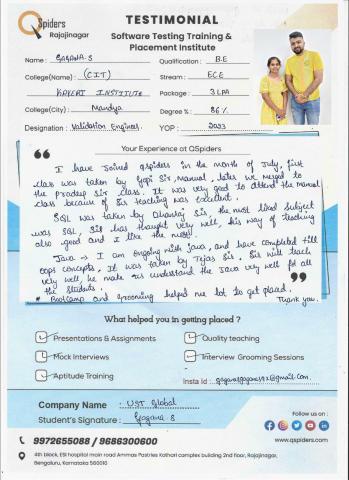 QSpiders
Rajajinagar
TESTIMONIAL
Software Testing Training &
Placement Institute
Name : GAGANA.S
Qualification : B.E
College(Name) : (CIT)
Stream : ECE
KAVERI INSTITUTE
Package : 3 LPA
College(City) : Mandya
Degree % : 86%
Designation : Validation Engineer.
YOP : 2023
Your Experience at QSpiders
I have joined qspiders in the month of July, first
class was taken by Gopi Sir, Manual, later we merged to
the pradeep sir class. It was very good to attend the manual
class because of sir teaching was excellent.
SQL was taken by sir, the most liked subject
was SQL, Sir has thought very well, his way of teaching
also good and I like the most.
Java → I am ongoing with Java, and have completed till
oops concepts, It was taken by Tejas Sir. Sir will teach
very well, he make us understand the Java very well for all
the students.
* Bootcamp and Grooming helped me lot to get placed.
Thank you.
What helped you in getting placed ?
Presentations & Assignments
Quality teaching
Mock Interviews
Interview Grooming Sessions
Aptitude Training
Insta Id :
Company Name : UST Global
Student's Signature : Gagana.S
Follow us on :
9972655088 / 9686300600
www.qspiders.com
4th block, ESI hospital main road Ammas Pastries Kathari complex building 2nd floor, Rajajinagar,
Bengaluru, Karnataka 560010